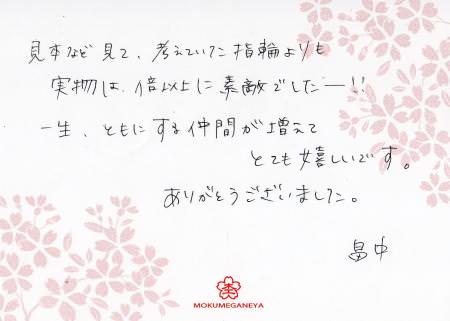 見本など見て、考えていた指輪よりも
実物は、倍以上に素敵でしたー!!
一生、ともにする仲間が増えて
とても嬉しいです。
ありがとうございました。
畠中
MOKUMEGANEYA